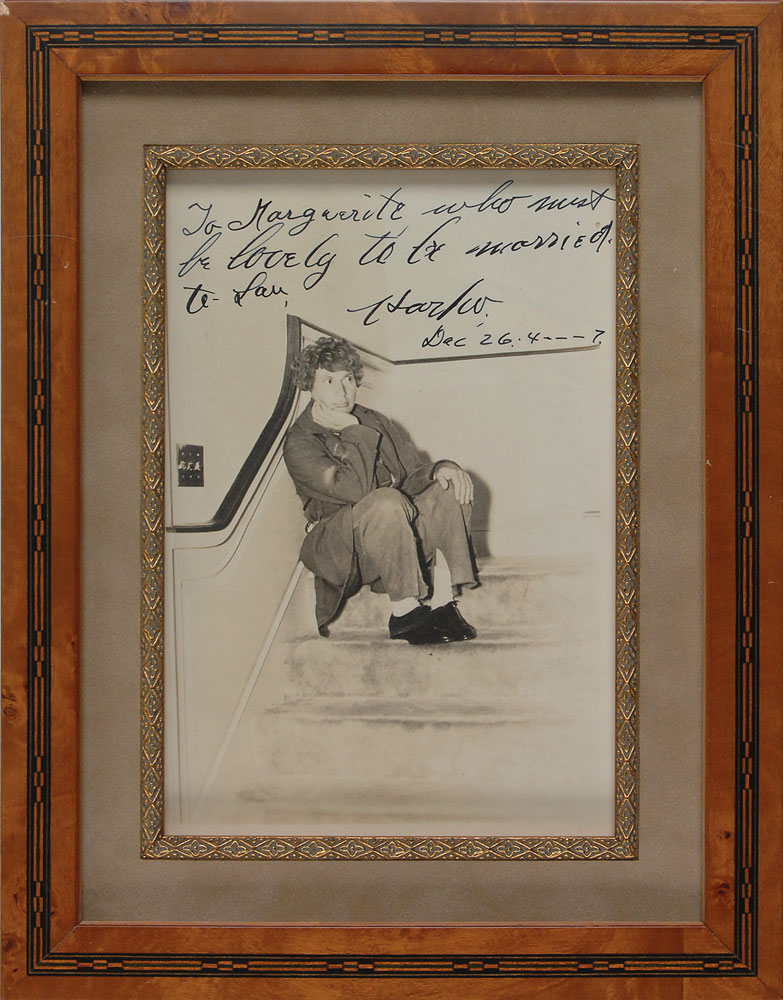 To Marguerite who must
be lovely to be married.
to - Sam, Harpo.
Dec 26. 4---7.